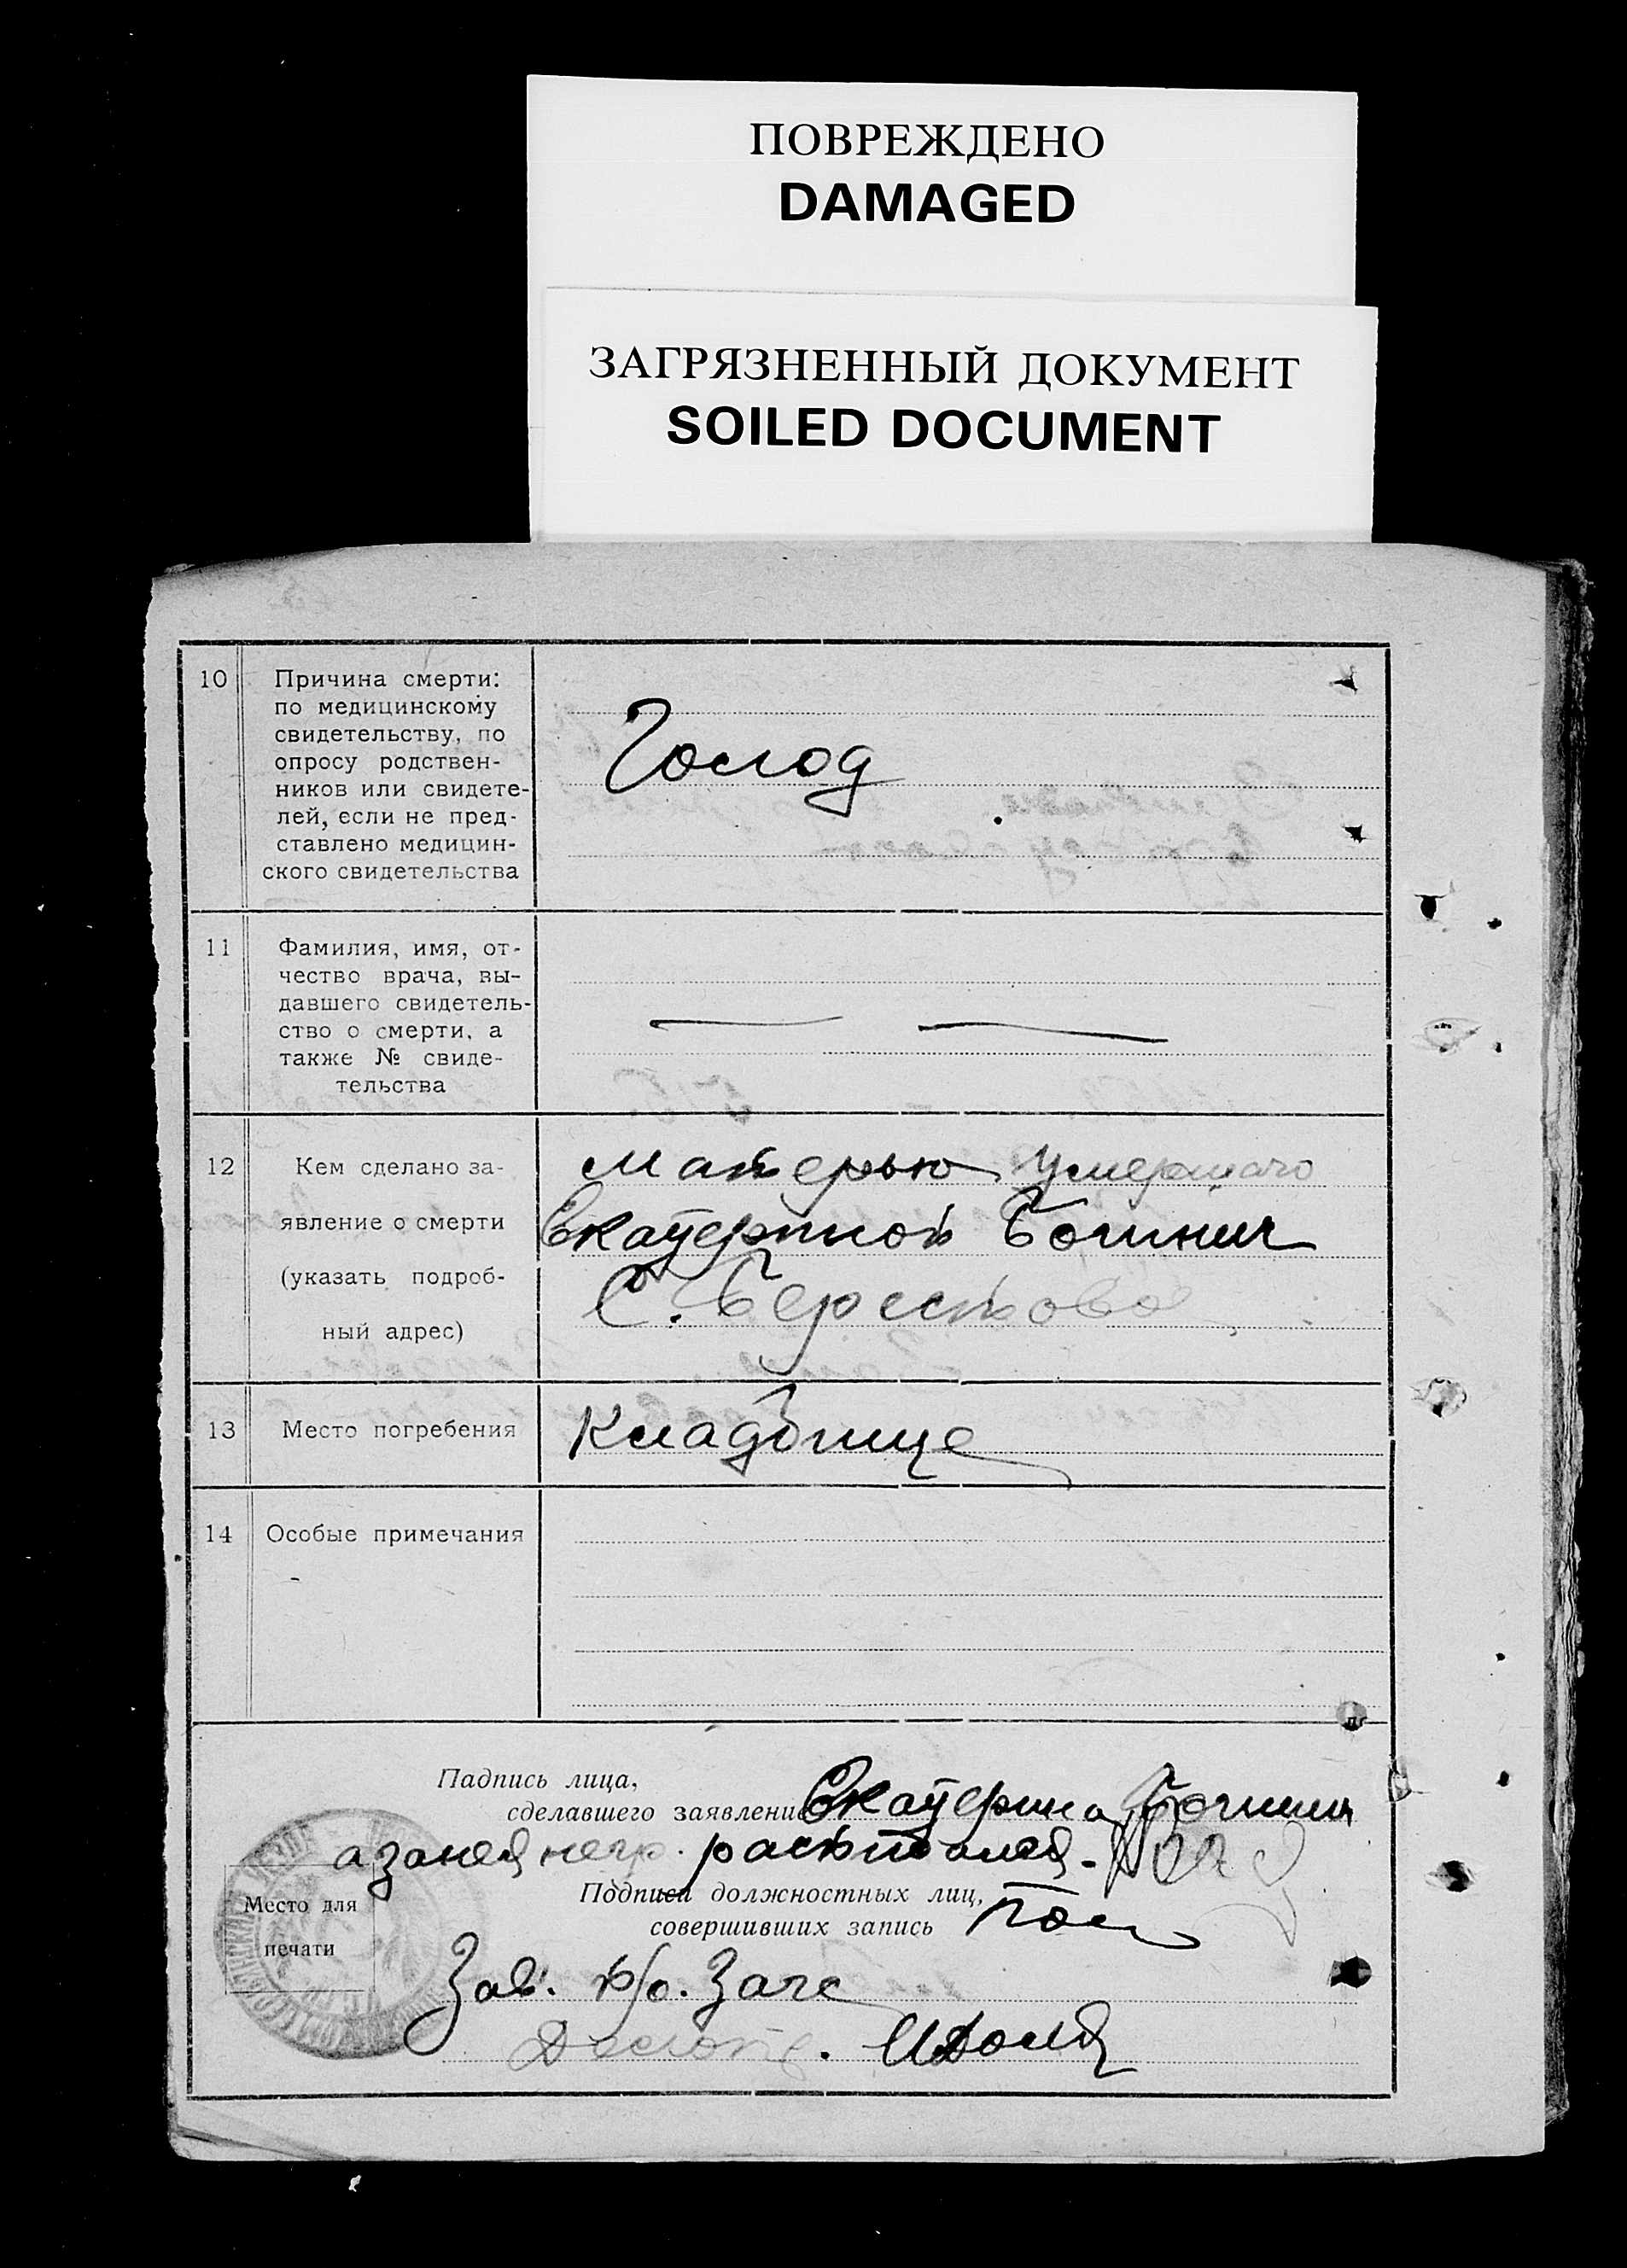 ПОВРЕЖДЕНО
DAMAGED
ЗАГРЯЗНЕННЫЙ ДОКУМЕНТ
SOILED DOCUMENT
10
Причина смерти:
по медицинскому
свидетельству, по
опросу родствен-
ников или свидете-
лей, если не пред-
ставлено медицин-
ского свидетельства
Голод
11
Фамилия, имя, от-
чество врача, вы-
давшего свидетель-
ство о смерти, а
также № свиде-
тельства
12
Кем сделано за-
явление о смерти
(указать подроб-
ный адрес)
матерью умершаго
Екатериной
С. Берестово
13
Место погребения
Кладбище
14
Особые примечания
Падпись лица,
сделавшего заявление
Екатерина
а за нея негр.
Подписи должностных лиц,
совершивших запись
Место для
печати
Зав. р/о. Загс